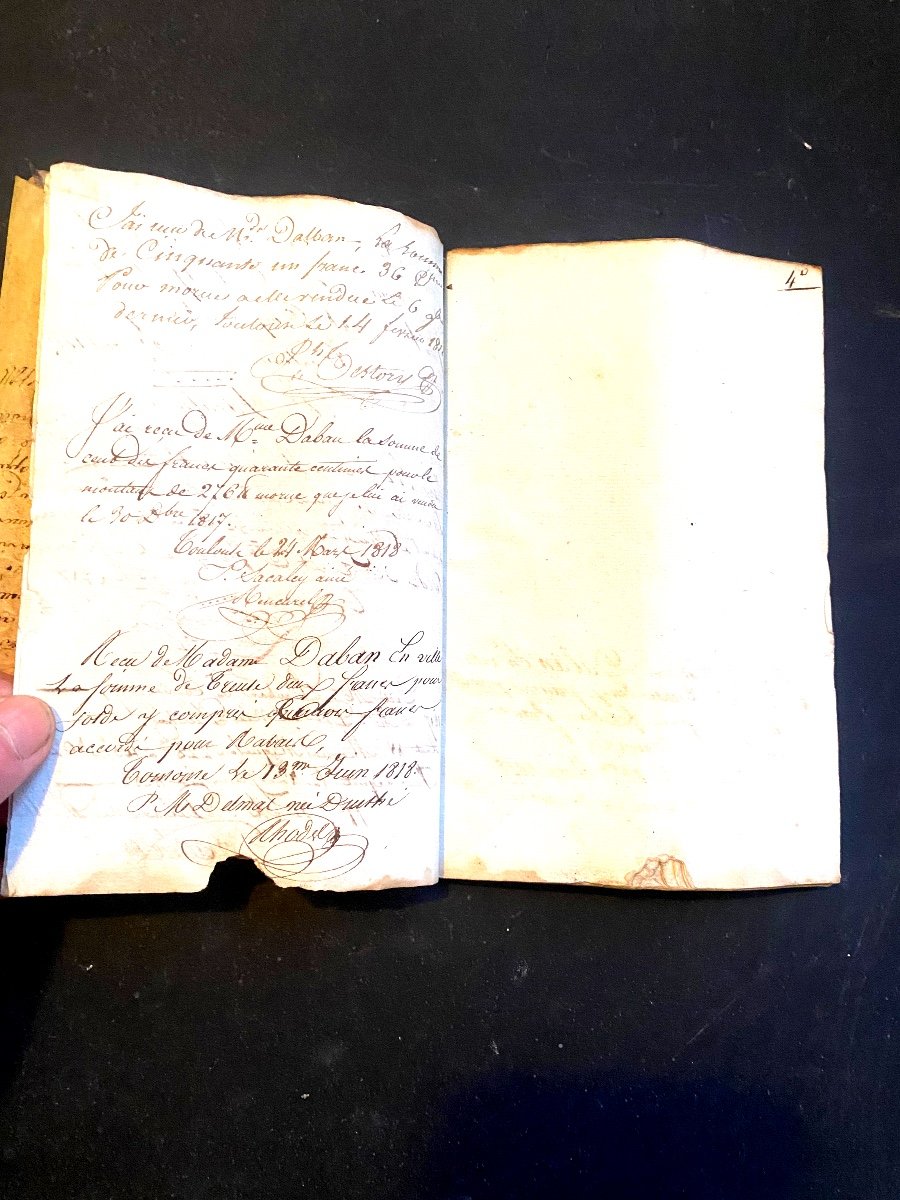 J'ai reçu de Md. Dalban, La Somme
de Cinquante un franc 36
Pour morue a elle vendue le 6
dernier, Toulouse le 14 fevrier 181
Destours
J'ai reçu de Mme Daban la somme de
cent dix francs quarante centimes pour le
montant de 276 morue que je lui ai vendu
le 30 Xbre 1817.
Toulouse le 24 Mars 1818
P. Lacaley ainé
Recu de Madame Daban En ville
La Somme de Trente deux francs pour
solde y compris francs
accordé pour Rabais,
Toulouse Le 13me Juin 1818.
P. M. Delmas née
4